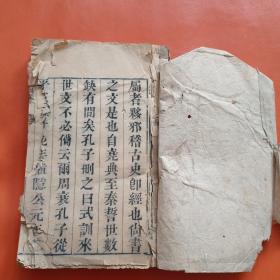 屬者夥邪稽古史即經也尙書
之文是也自堯典至秦誓世數
缺有間矣孔子刪之曰式訓來
世文不必備云爾周衰孔子從
隱公元